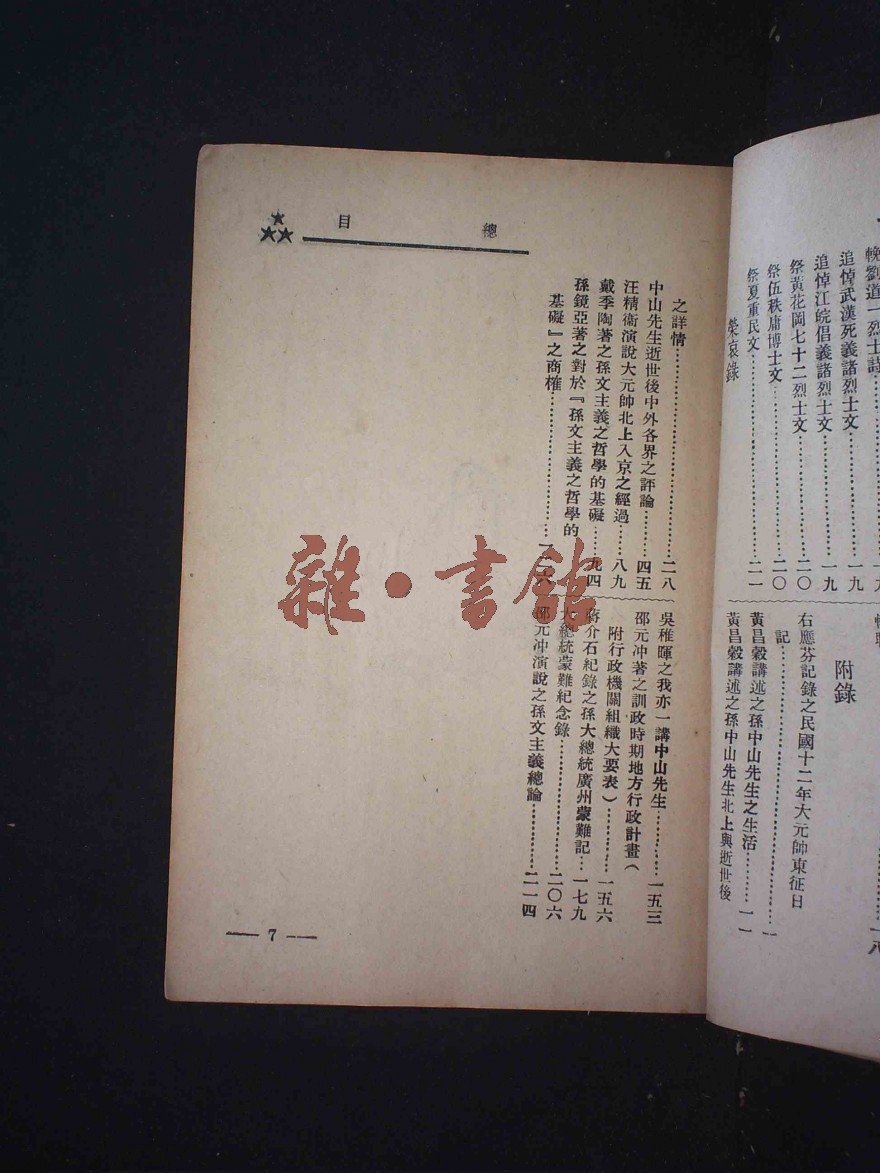 輓劉道一烈士詩
追悼武漢死義諸烈士文……一九
追悼江皖倡義諸烈士文……一九
祭黃花岡七十二烈士文……二〇
祭伍秩庸博士文……二〇
祭夏重民文……二一
榮哀錄
附錄
右應芬記錄之民國十二年大元帥東征日
記……一
黃昌穀講述之孫中山先生之生活……一一
黃昌穀講述之孫中山先生北上與逝世後
總目
之詳情……二八
中山先生逝世後中外各界之評論……四五
汪精衛演說大元帥北上入京之經過……八九
戴季陶著之孫文主義之哲學的基礎……九四
孫鏡亞著之對於『孫文主義之哲學的
基礎』之商榷……一三六
吳稚暉之我亦一講中山先生……一五三
邵元冲著之訓政時期地方行政計畫(
附行政機關組織大要表)……一五六
蔣介石紀錄之孫大總統廣州蒙難記…一七九
大總統蒙難紀念錄……二〇六
邵元冲演說之孫文主義總論……二一四
— 7 —
雜·書館